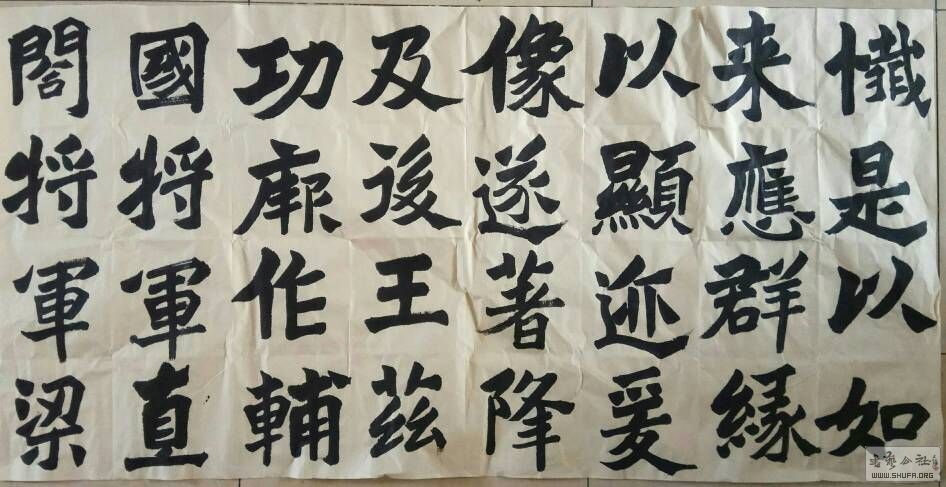 懺是以如
来應群緣
以顯迹爰
像遂著降
及後王茲
功厥作輔
國將軍直
閤將軍梁
书艺公社
WWW.SHUFA.ORG